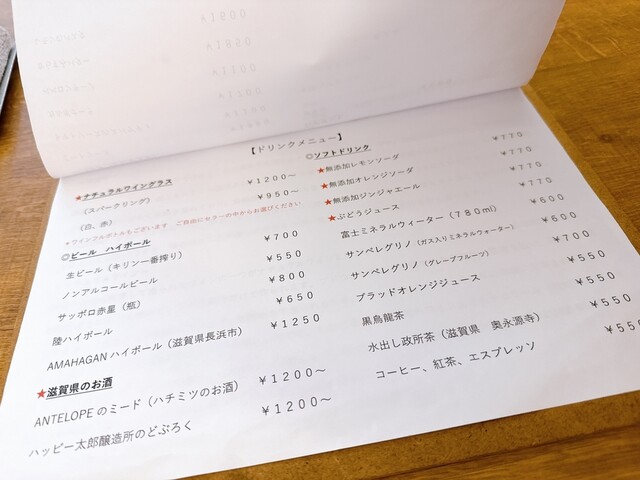 【ドリンクメニュー】
★ナチュラルワイングラス
(スパークリング) ¥1200～
(白、赤) ¥950～
★ワインフルボトルもございます　ご自由にセラーの中からお選びください
◎ビール　ハイボール
生ビール（キリン一番搾り） ¥700
ノンアルコールビール ¥550
サッポロ赤星（瓶） ¥800
陸ハイボール ¥650
AMAHAGANハイボール（滋賀県長浜市） ¥1250
★滋賀県のお酒
ANTELOPEのミード（ハチミツのお酒） ¥1200～
ハッピー太郎醸造所のどぶろく ¥1200～
◎ソフトドリンク
★無添加レモンソーダ ¥770
★無添加オレンジソーダ ¥770
★無添加ジンジャエール ¥770
★ぶどうジュース ¥770
富士ミネラルウィーター（780ml） ¥600
サンペレグリノ（ガス入りミネラルウォーター） ¥600
サンペレグリノ（グレープフルーツ） ¥700
ブラッドオレンジジュース ¥550
黒烏龍茶 ¥550
水出し政所茶（滋賀県　奥永源寺） ¥550
コーヒー、紅茶、エスプレッソ ¥550